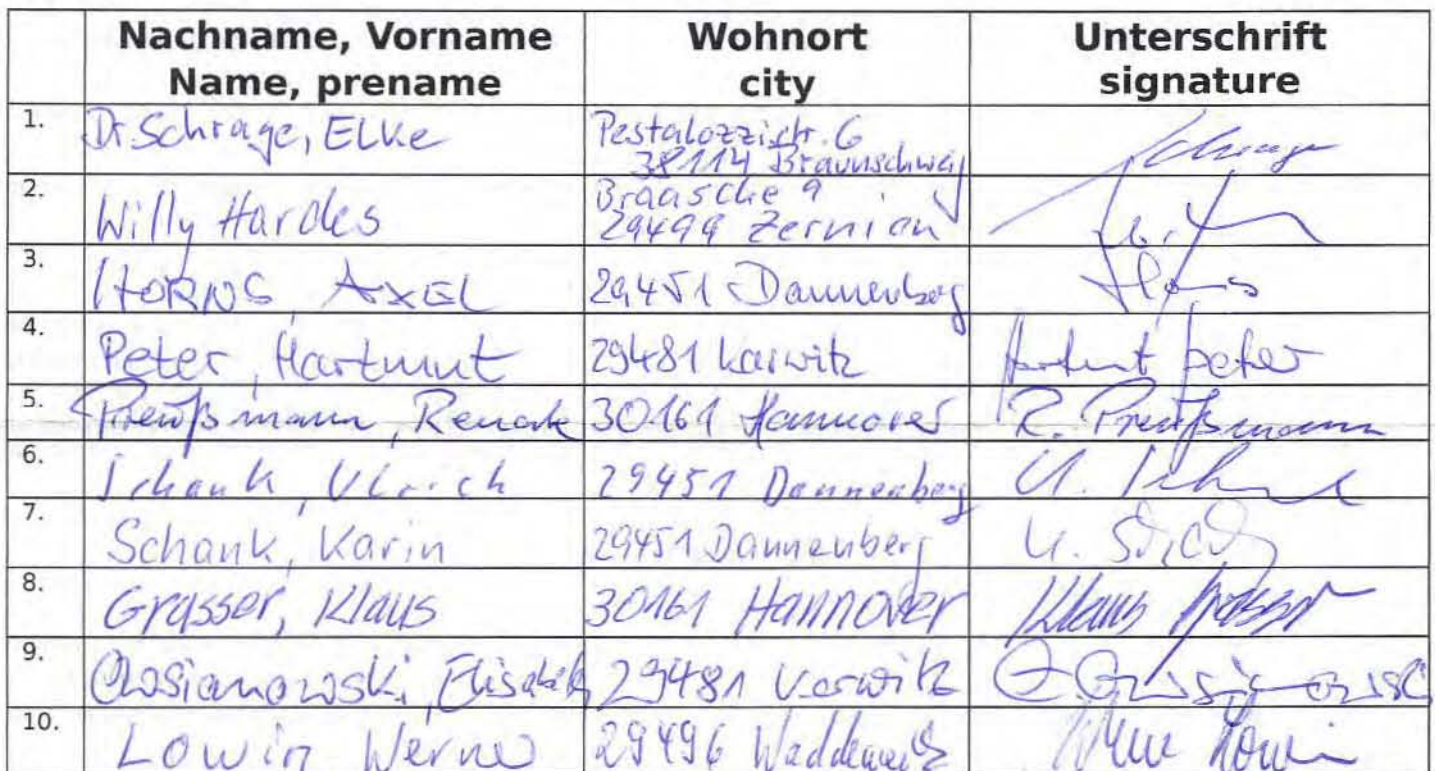 Nachname, Vorname Wohnort Unterschrift
Name, prename city signature
1. Dr. Schrage, Elke Pestalozzistr. 6
38114 Braunschweig
2. Willy Hardes Braasche 9
29499 Zernien
3. HORNS, AXEL 29451 Dannenberg
4. Peter, Hartmut 29481 Karwitz Hartmut Peter
5. Preußmann, Renate 30161 Hannover R. Preußmann
6. Schank, Ulrich 29451 Dannenberg
7. Schank, Karin 29451 Dannenberg
8. Grasser, Klaus 30161 Hannover Klaus Grasser
9. Elisabeth 29481 Karwitz
10. Lowin Werner 29496 Werner Lowin